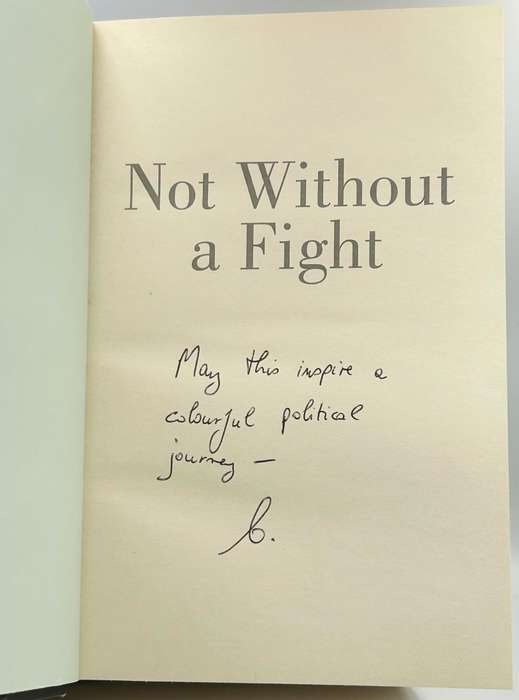 Not Without
a Fight
May this inspire a
colourful political
journey —
C.